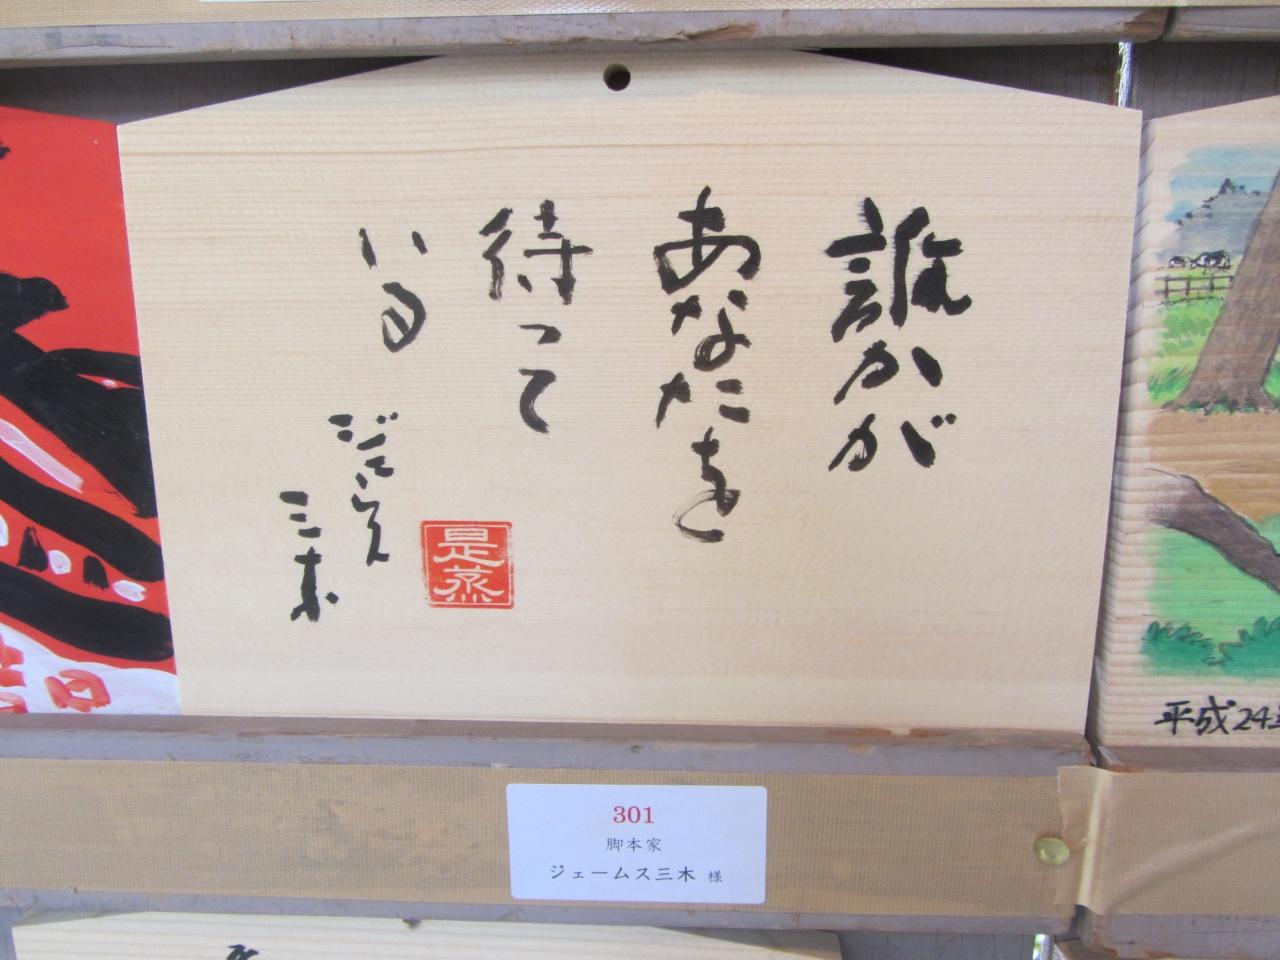 誰かが
あなたを
待って
いる
ジェームス
三木
是蒸
301
脚本家
ジェームス三木 様
平成24